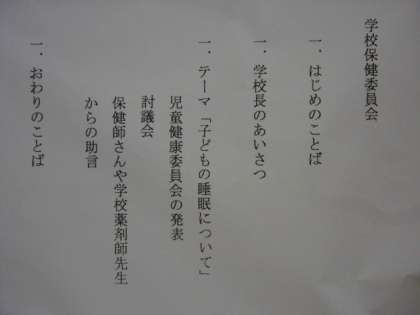 学校保健委員会
一．はじめのことば
一．学校長のあいさつ
一．テーマ「子どもの睡眠について」
児童健康委員会の発表
討議会
保健師さんや学校薬剤師先生
からの助言
一．おわりのことば